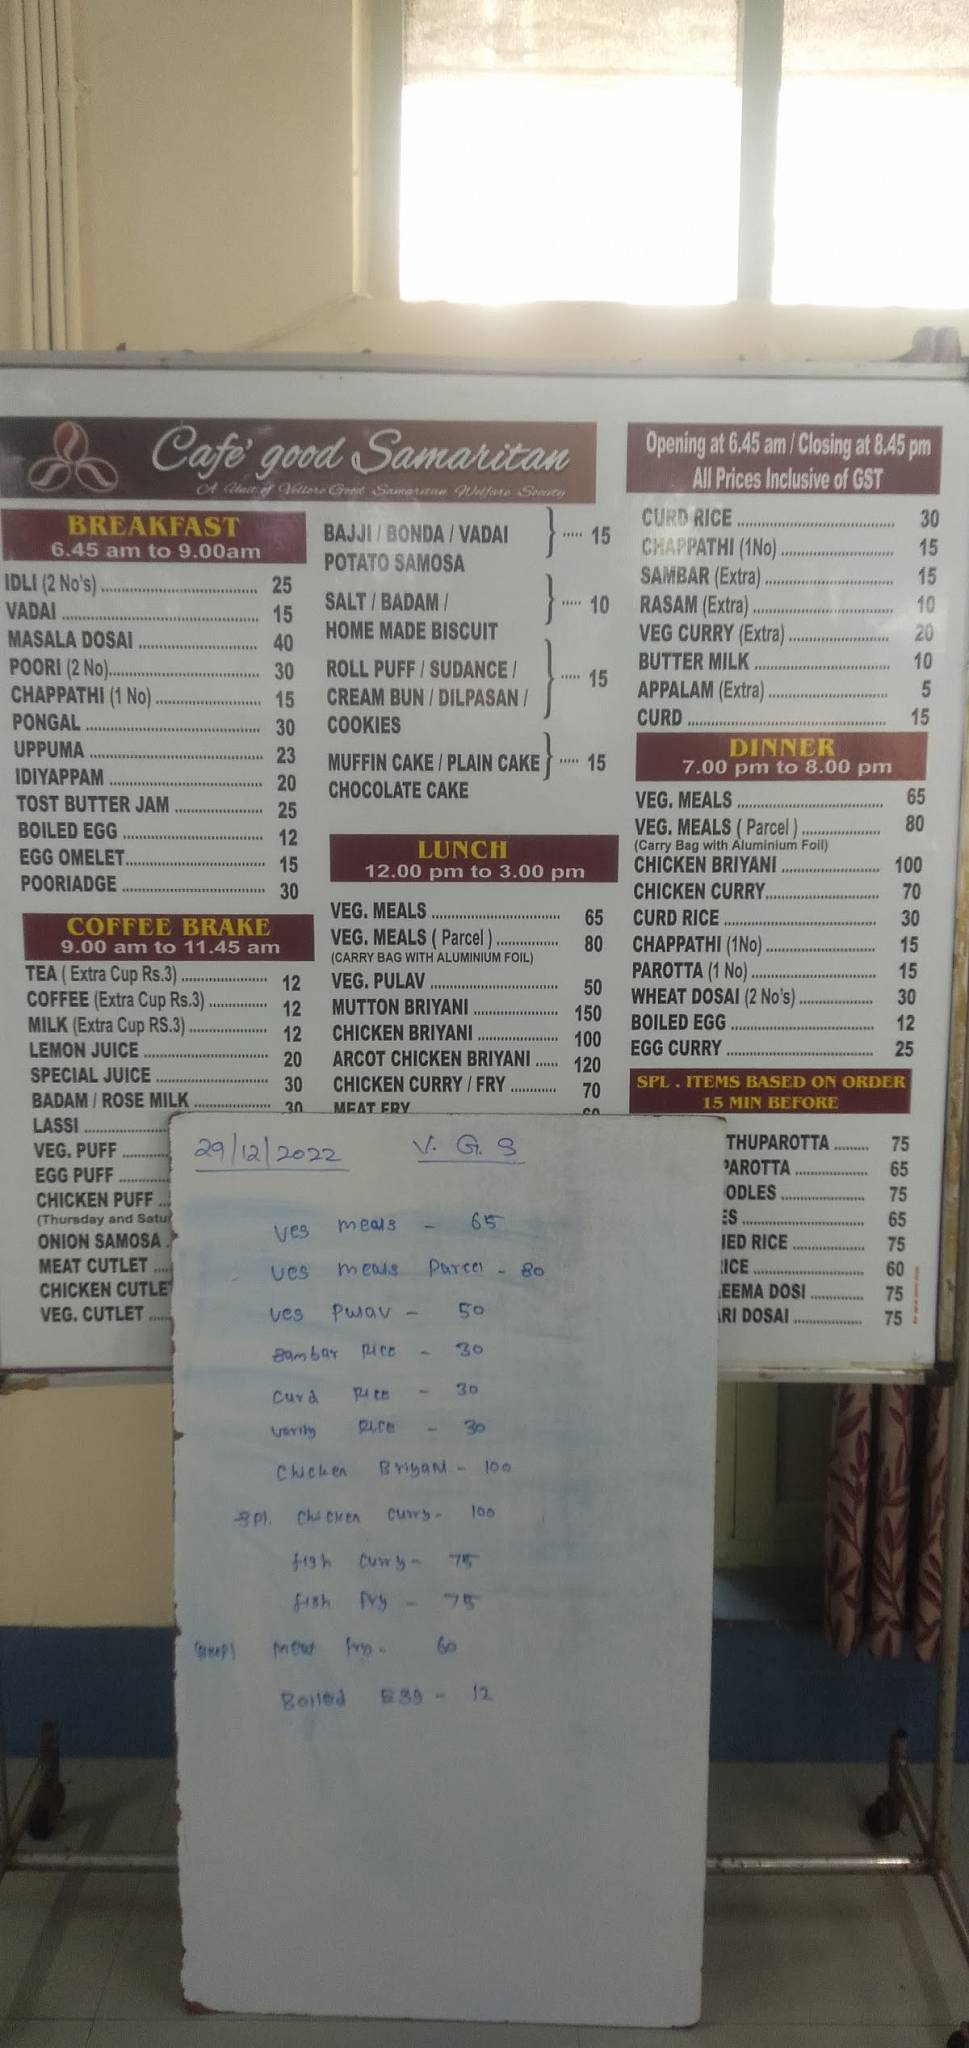 Café good Samaritan
A Unit of Vellore Good Samaritan Welfare Society
BREAKFAST
6.45 am to 9.00am
IDLI (2 No's) ........ 25
VADAI ........ 15
MASALA DOSAI ........ 40
POORI (2 No)........ 30
CHAPPATHI (1 No) ........ 15
PONGAL ........ 30
UPPUMA ........ 23
IDIYAPPAM ........ 20
TOST BUTTER JAM ........ 25
BOILED EGG ........ 12
EGG OMELET........ 15
POORIADGE ........ 30
COFFEE BRAKE
9.00 am to 11.45 am
TEA ( Extra Cup Rs.3) ........ 12
COFFEE (Extra Cup Rs.3) ........ 12
MILK (Extra Cup RS.3) ........ 12
LEMON JUICE ........ 20
SPECIAL JUICE ........ 30
BADAM / ROSE MILK ........ 30
LASSI ........
VEG. PUFF ........
EGG PUFF ........
CHICKEN PUFF ...
(Thursday and Satu
ONION SAMOSA .
MEAT CUTLET ....
CHICKEN CUTLE
VEG. CUTLET .....
BAJJI / BONDA / VADAI
POTATO SAMOSA } ..... 15
SALT / BADAM /
HOME MADE BISCUIT } ..... 10
ROLL PUFF / SUDANCE /
CREAM BUN / DILPASAN /
COOKIES } ..... 15
MUFFIN CAKE / PLAIN CAKE
CHOCOLATE CAKE } ..... 15
LUNCH
12.00 pm to 3.00 pm
VEG. MEALS ........ 65
VEG. MEALS ( Parcel ) ........ 80
(CARRY BAG WITH ALUMINIUM FOIL)
VEG. PULAV ........ 50
MUTTON BRIYANI ........ 150
CHICKEN BRIYANI ........ 100
ARCOT CHICKEN BRIYANI ..... 120
CHICKEN CURRY / FRY ........ 70
MEAT FRY 60
Opening at 6.45 am / Closing at 8.45 pm
All Prices Inclusive of GST
CURD RICE ........ 30
CHAPPATHI (1No) ........ 15
SAMBAR (Extra) ........ 15
RASAM (Extra) ........ 10
VEG CURRY (Extra) ........ 20
BUTTER MILK ........ 10
APPALAM (Extra) ........ 5
CURD ........ 15
DINNER
7.00 pm to 8.00 pm
VEG. MEALS ........ 65
VEG. MEALS ( Parcel ) ........ 80
(Carry Bag with Aluminium Foil)
CHICKEN BRIYANI ........ 100
CHICKEN CURRY........ 70
CURD RICE ........ 30
CHAPPATHI (1No) ........ 15
PAROTTA (1 No) ........ 15
WHEAT DOSAI (2 No's) ........ 30
BOILED EGG ........ 12
EGG CURRY ........ 25
SPL . ITEMS BASED ON ORDER
15 MIN BEFORE
THUPAROTTA ........ 75
PAROTTA ........ 65
OODLES ........ 75
ES ........ 65
IED RICE ........ 75
ICE ........ 60
EEMA DOSI ........ 75
RI DOSAI ........ 75
29/12/2022 V. G. S
veg meals - 65
veg meals Parcel - 80
veg Pulav - 50
Sambar Rice - 30
Curd Rice - 30
Rice - 30
Chicken Briyani - 100
Spl. Chicken curry - 100
fish curry - 75
fish fry - 75
meat fry - 60
Boiled Egg - 12